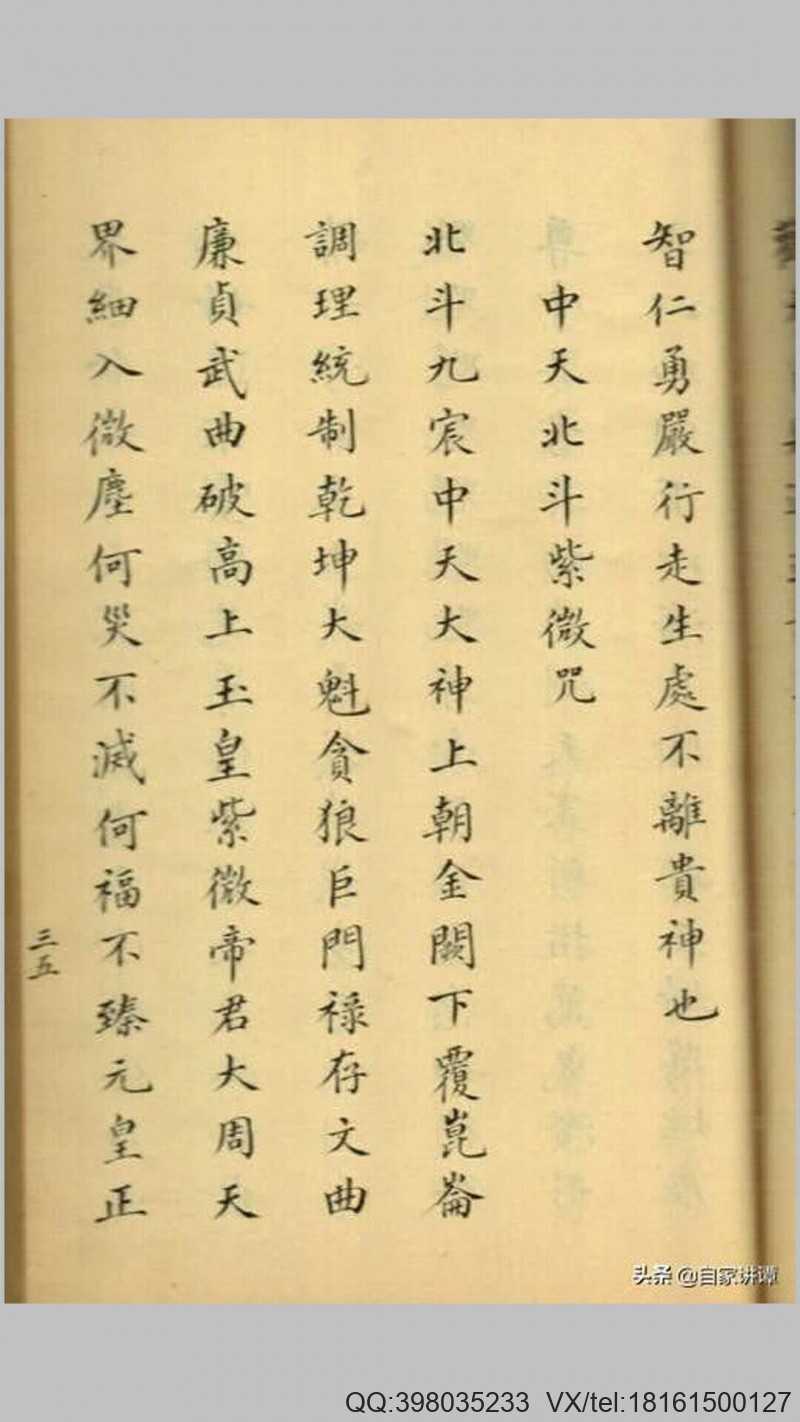 智仁勇嚴行走生處不離貴神也
中天北斗紫微咒
北斗九宸中天大神上朝金闕下覆崑崙
調理統制乾坤大魁貪狼巨門祿存文曲
廉貞武曲破高上玉皇紫微帝君大周天
界細入微塵何災不滅何福不臻元皇正
三五
头条 @自家讲谭
QQ:398035233 VX/tel:18161500127